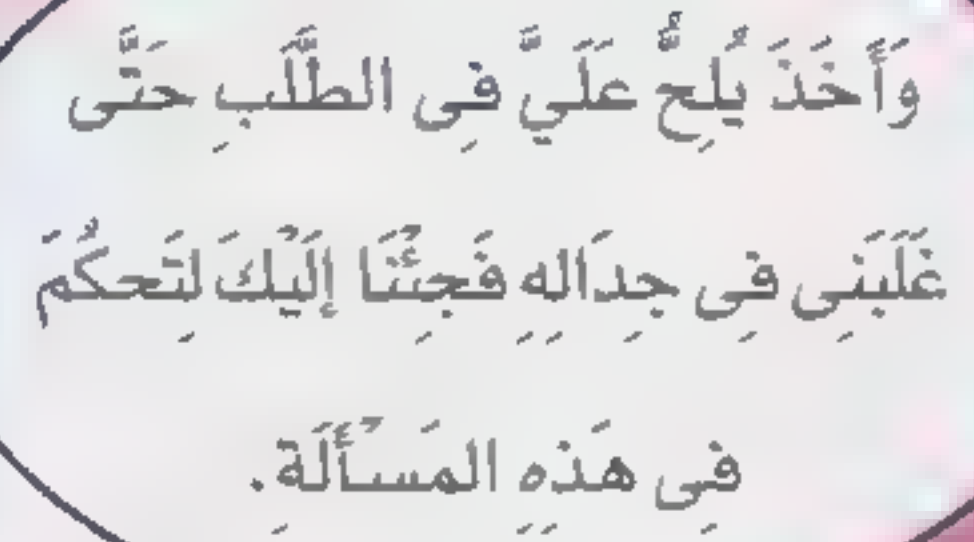 وَأَخَذَ يُلِحُّ عَلَيَّ فِى الطَّلَبِ حَتَّى
غَلَبَنِى فِى جِدَالِهِ فَجِئْنَا إِلَيْكَ لِتَحكُمَ
فِى هَذِهِ المَسْأَلَةِ.